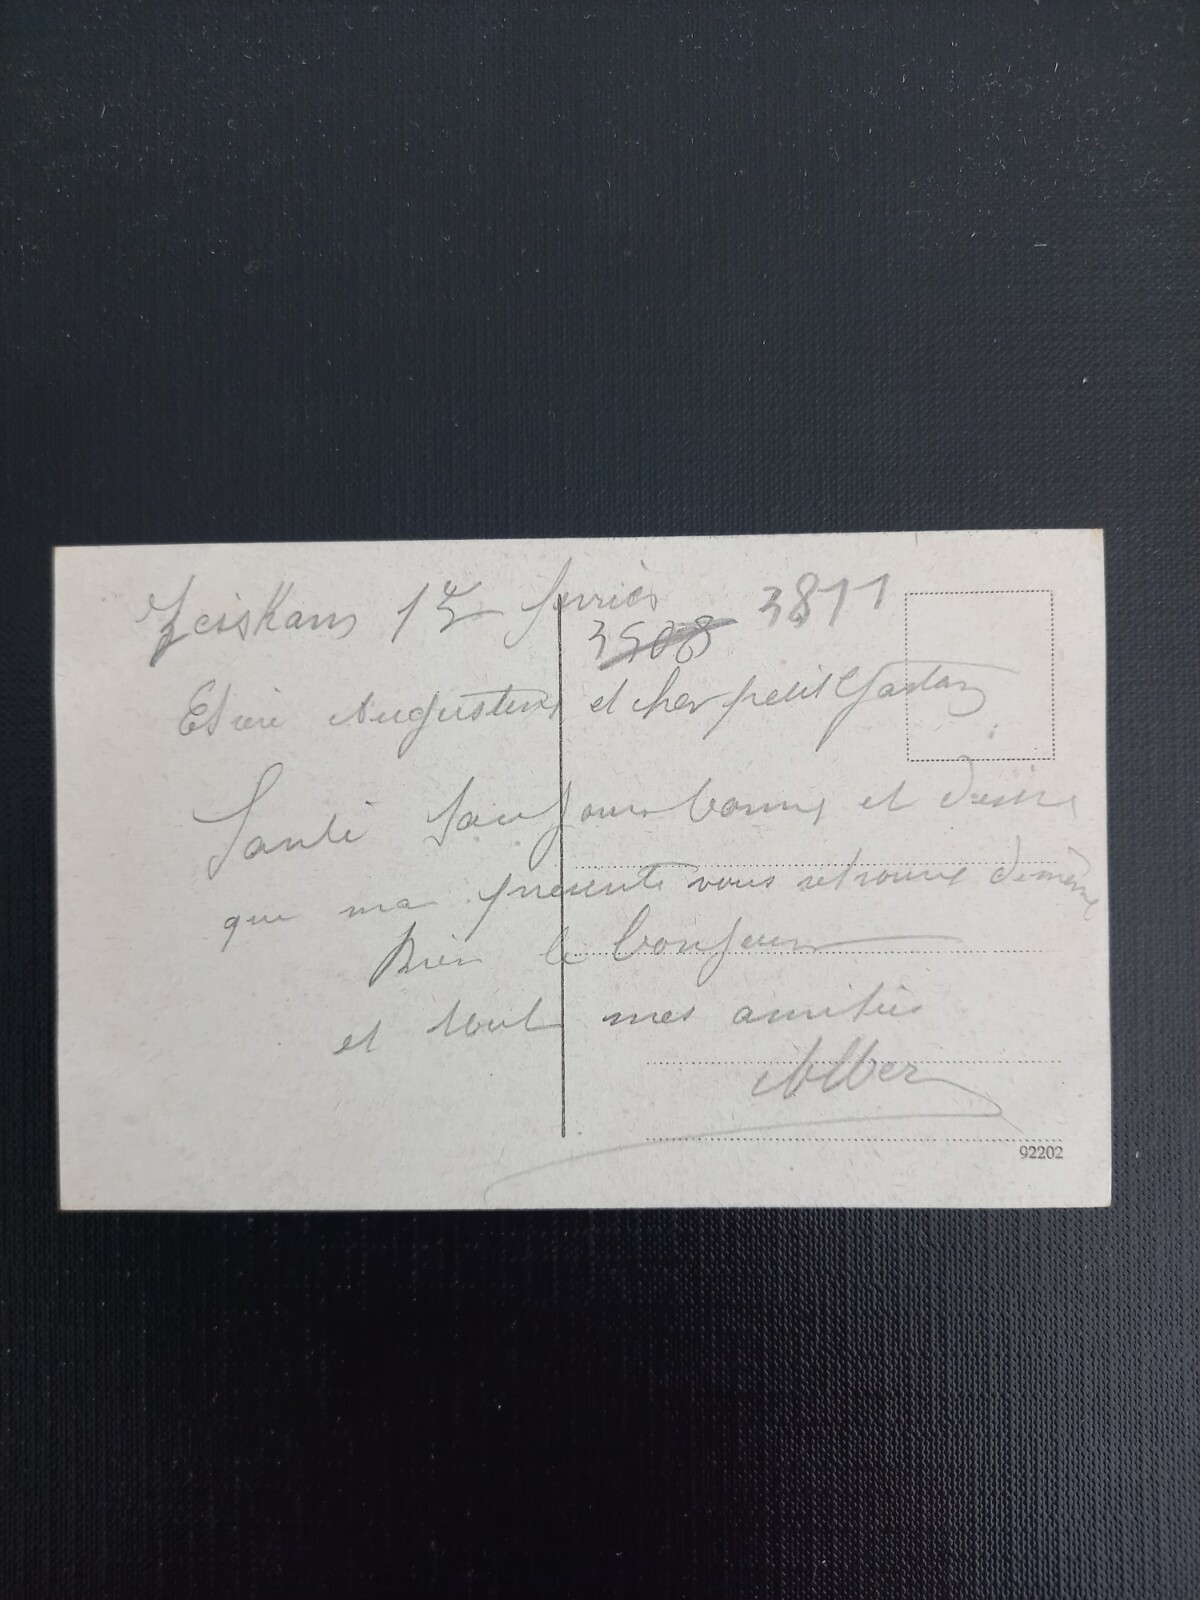 Zeiskam 15 fevrier
3508 3811
Augustine et cher petit Gaston
Santé toujours bonne et desire
que ma presente vous retrouve de même
Bien le bonjour
et tout mes amitiés
Alber
92202